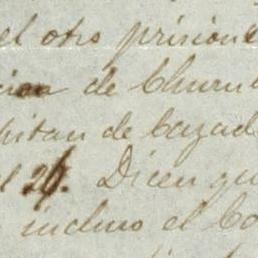 el otro prisione
de Churu
pitan de Cazad
el 26. Dicen qu
incluso el Co